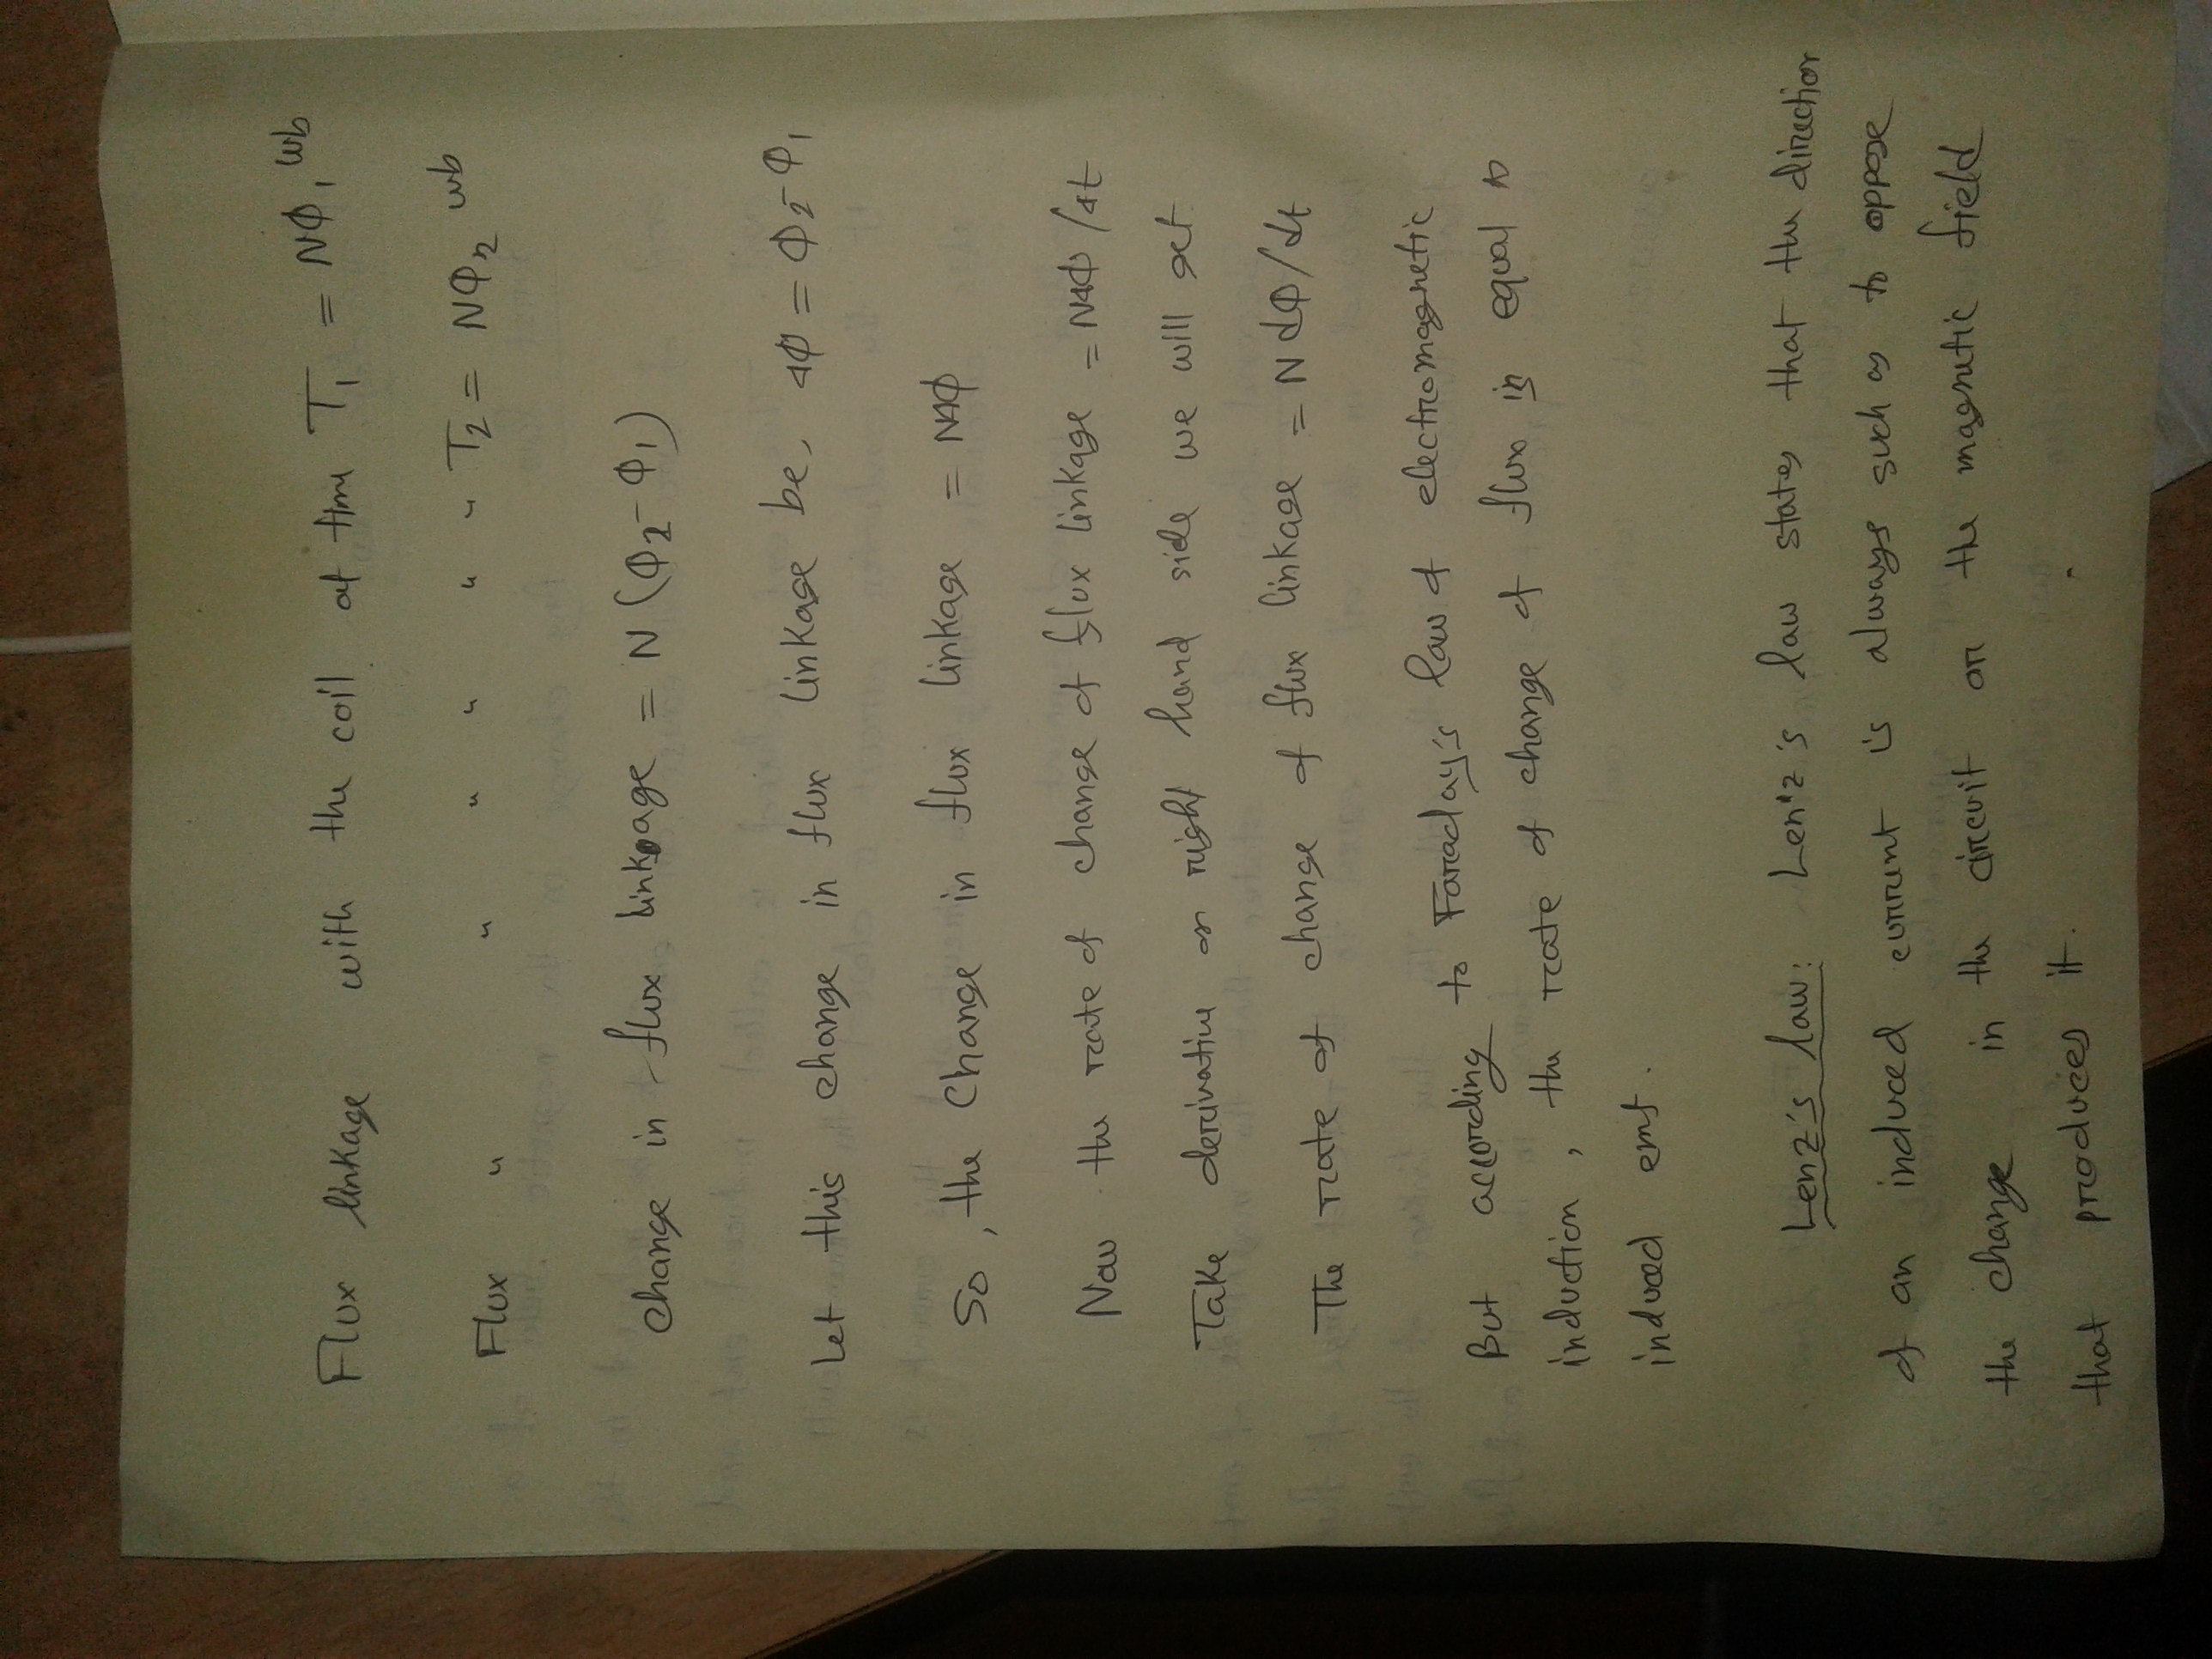 Flux linkage with the coil at time T₁ = NΦ₁ wb
Flux " " " " " " T₂ = NΦ₂ wb
change in flux linkage = N (Φ₂ - Φ₁)
Let this change in flux linkage be, ΔΦ = Φ₂ - Φ₁
So, the Change in flux linkage = NΔΦ
Now the rate of change of flux linkage = NΔΦ /Δt
Take derivative on right hand side we will get
The rate of change of flux linkage = N dΦ/dt
But according to Faraday's law of electromagnetic
induction, the rate of change of flux is equal to
induced emf.
Lenz's law: Lenz's law states that the direction
of an induced current is always such as to oppose
the change in the circuit or the magnetic field
that produces it.